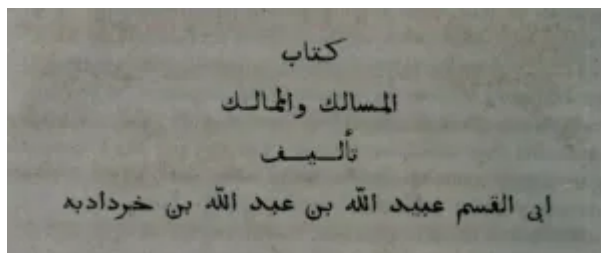 كتاب
المسالك والممالك
تأليف
ابى القسم عبيد الله بن عبد الله بن خردادبه